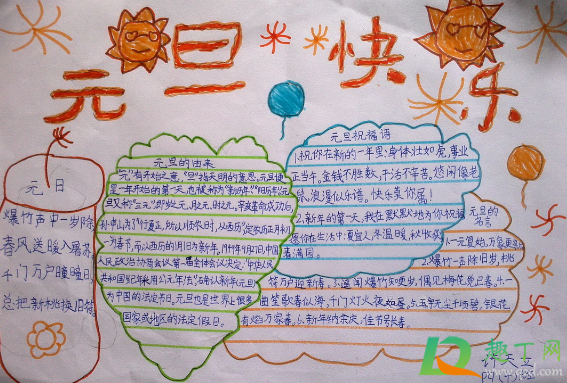 元旦快乐
元旦的由来
"元"有开始之意,"旦"指天明的意思。元旦便
是一年开始的第一天,也被称为"新历年"
孙中山为了"行夏正,所以顺农时,从西历"定农历正月初一
为春节,而以西历的1月1日为新年。1949年9月27日,中国
人民政治协商会议第一届全体会议决定:"中华人民
共和国纪年采用公元年法"
为中国的法定节日。元旦也是世界上很多
国家或地区的法定假日。
元旦祝福语
1.祝你在新的一年里:身体壮如虎,事业
正当午。金钱不胜数,干活不辛苦。悠闲像老
鼠,浪漫似乐谱。快乐莫你属!
2.新年的第一天,我在默默地为你祝福
愿你在生活中:夏宜人,冬温暖,秋收获
满园。
元日
爆竹声中一岁除
春风送暖入屠苏
千门万户曈曈日
总把新桃换旧符
元旦的
名言
1.一元复始,万象更新
2.爆竹一声除旧岁,桃
符万户迎新春。3.遥闻爆竹知更岁,偶见梅花觉已春。4.一
曲笙歌春似海,千门灯火夜如昼。
万家春。6.新年纳余庆,佳节号长春。
趣丁网
qudd.com